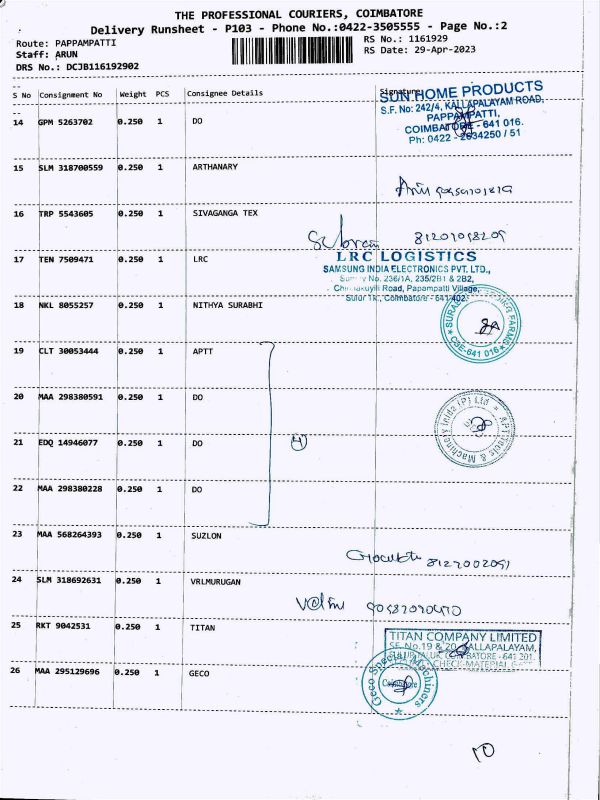 THE PROFESSIONAL COURIERS, COIMBATORE
Delivery Runsheet - P103 - Phone No.:0422-3505555 - Page No.:2
Route: PAPPAMPATTI
RS No.: 1161929
Staff: ARUN
RS Date: 29-Apr-2023
DRS No.: DCJB116192902
S No Consignment No Weight PCS Consignee Details Signature
SUN HOME PRODUCTS
S.F. No: 242/4, KALLAPALAYAM ROAD,
PAPPAMPATTI,
COIMBATORE - 641 016.
Ph: 0422 - 2634250 / 51
14 GPM 5263702 0.250 1 DO
15 SLM 318700559 0.250 1 ARTHANARY
16 TRP 5543605 0.250 1 SIVAGANGA TEX
81201098209
17 TEN 7509471 0.250 1 LRC
LRC LOGISTICS
SAMSUNG INDIA ELECTRONICS PVT. LTD.,
No. 236/1A, 235/2B1 & 2B2,
Road, Papampatti Village,
Sulur Tk., Coimbatore - 641 402.
18 NKL 8055257 0.250 1 NITHYA SURABHI
FARMS
CBE-641 016
19 CLT 30053444 0.250 1 APTT
20 MAA 298380591 0.250 1 DO
21 EDQ 14946077 0.250 1 DO
4
APT Tools & Machinery India (P) Ltd
22 MAA 298380228 0.250 1 DO
23 MAA 568264393 0.250 1 SUZLON
24 SLM 318692631 0.250 1 VRLMURUGAN
25 RKT 9042531 0.250 1 TITAN
TITAN COMPANY LIMITED
SF. No.19 & 20, KALLAPALAYAM,
COIMBATORE - 641 201.
26 MAA 295129696 0.250 1 GECO
Geco Special Machiners
Coimbatore
10